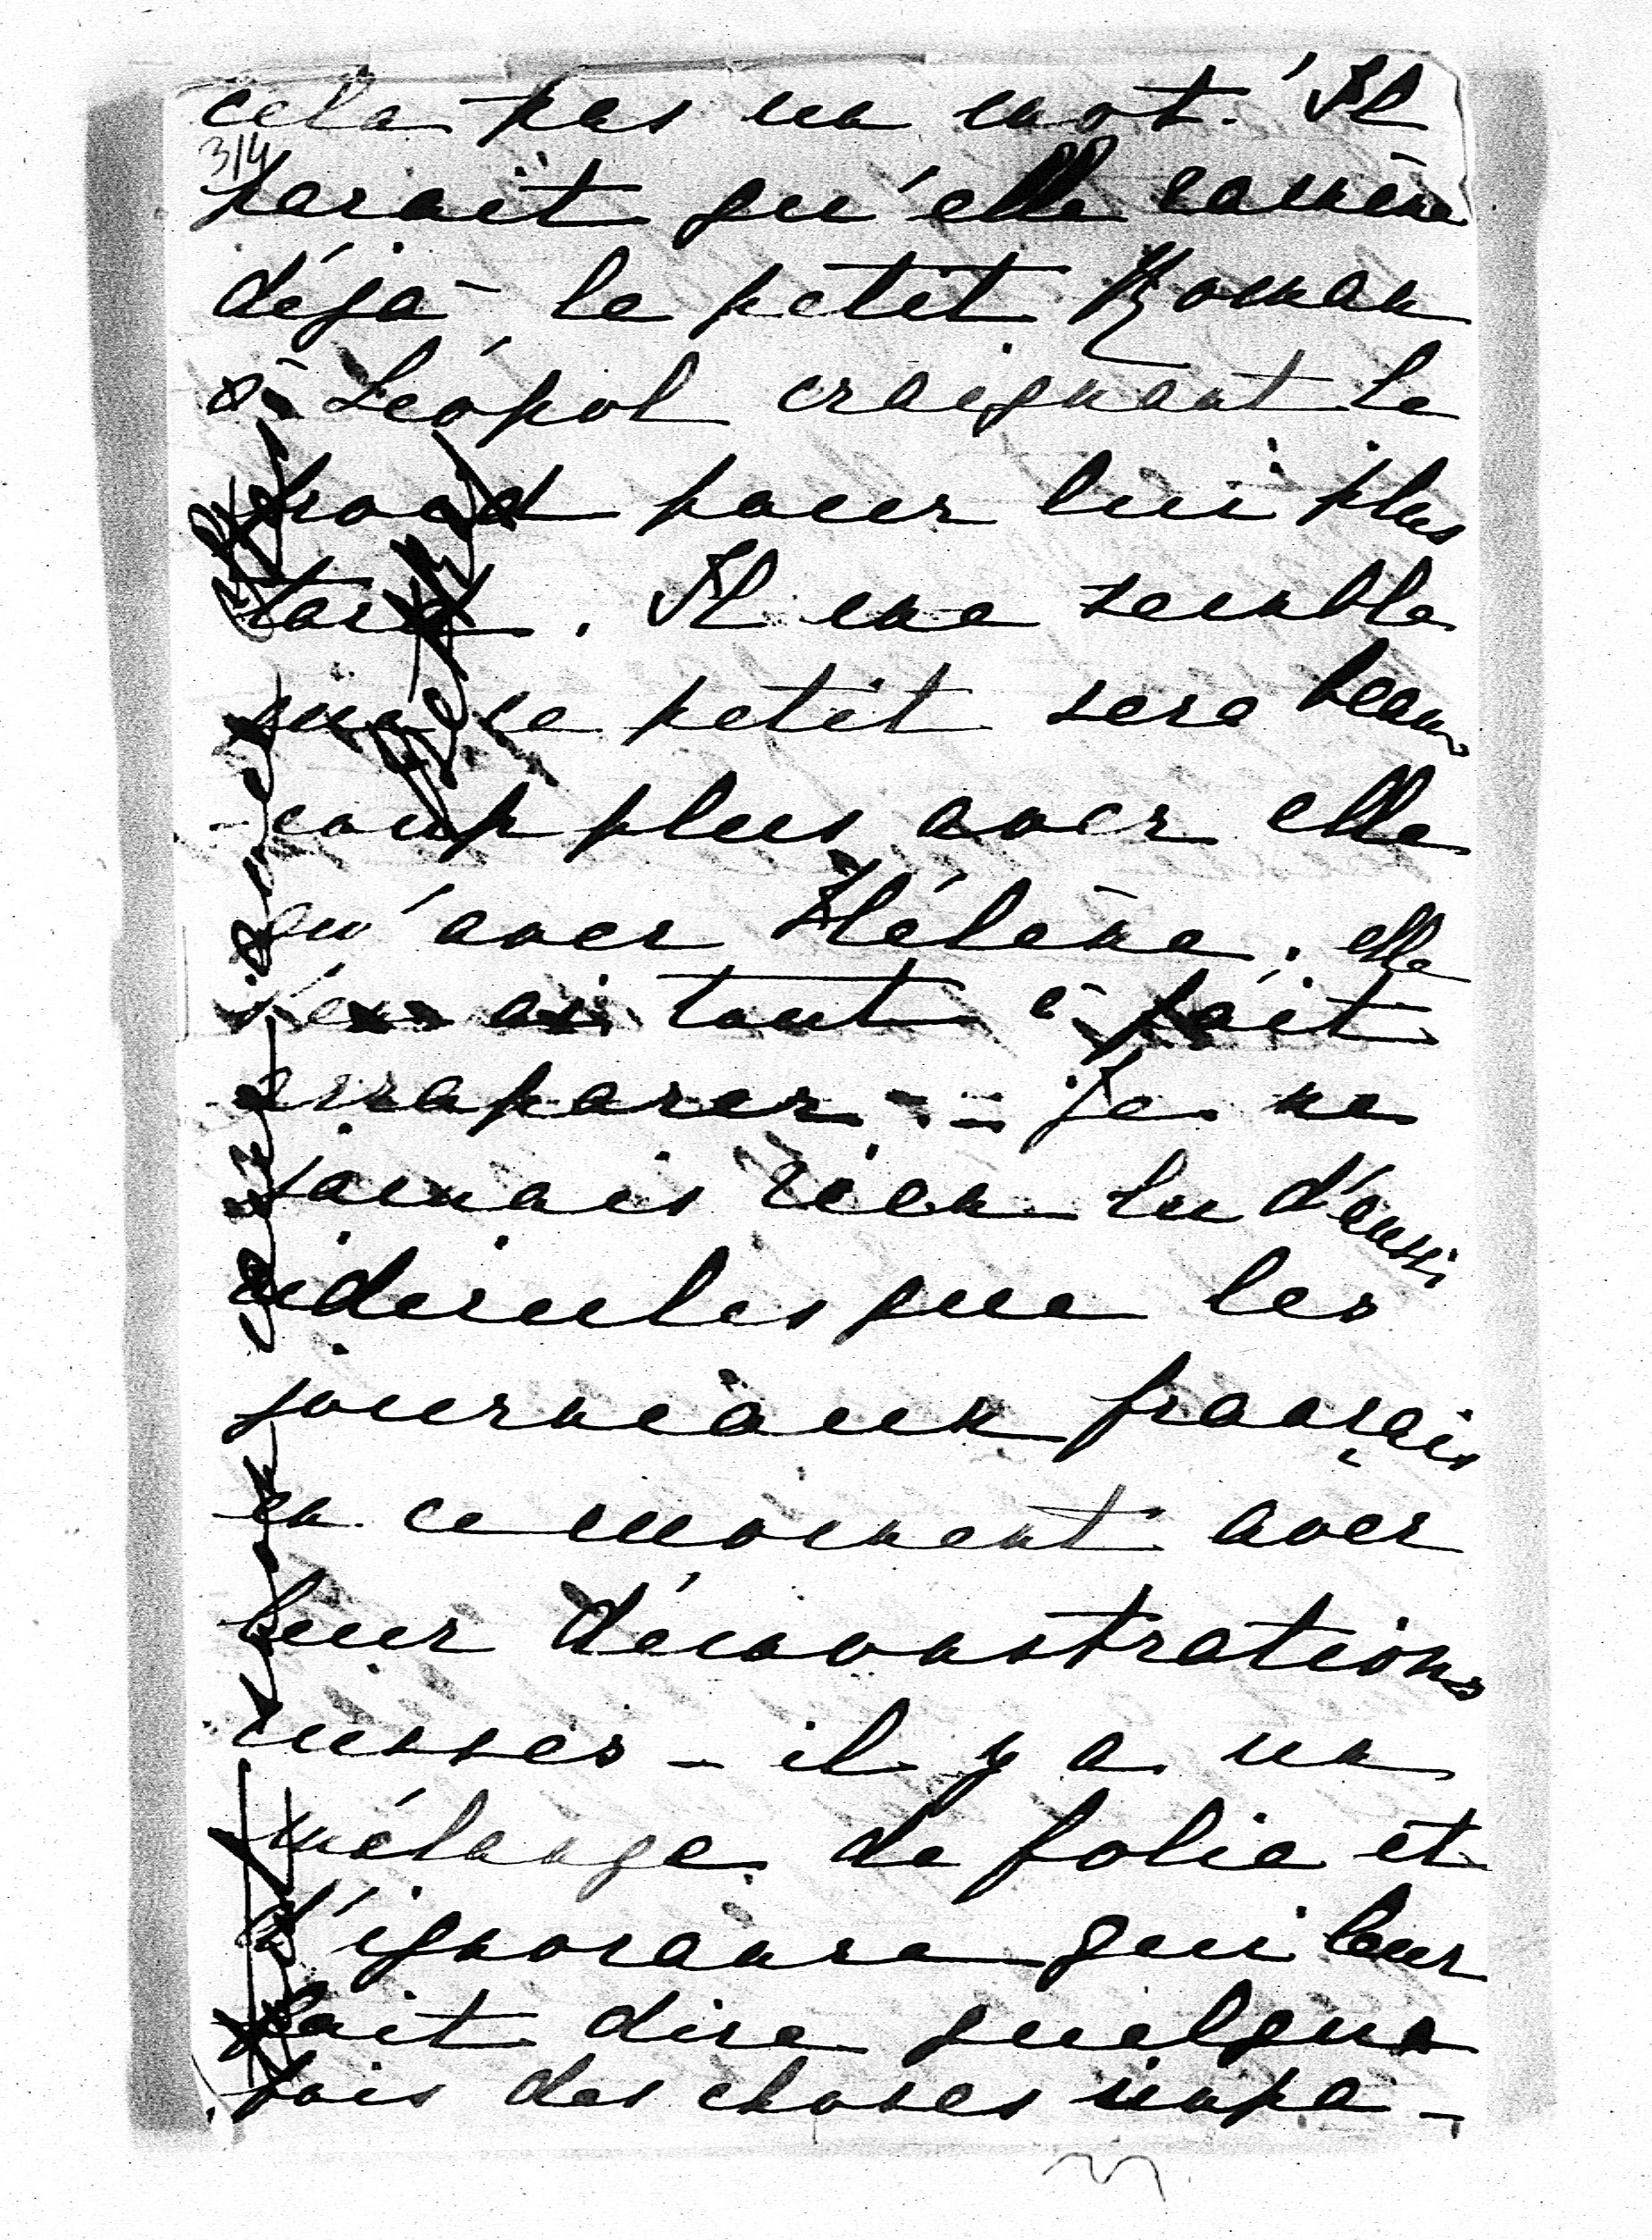 cela pas un mot. Il
3/4
parait qu'elle ramène
déjà le petit Roman
à Léopol craignant le
froid pour lui plus
tard. Il me semble
que ce petit sera beau
-coup plus avec elle
qu'avec Hélène. elle
tout à fait
accaparer. - Je ne
jamais rien lu d'aussi
ridicules que les
journeaux français
en ce moment avec
leur démonstrations
russes - il y a un
mélange de folie et
d'ignorance qui leur
fait dire quelque
fois des choses impa-